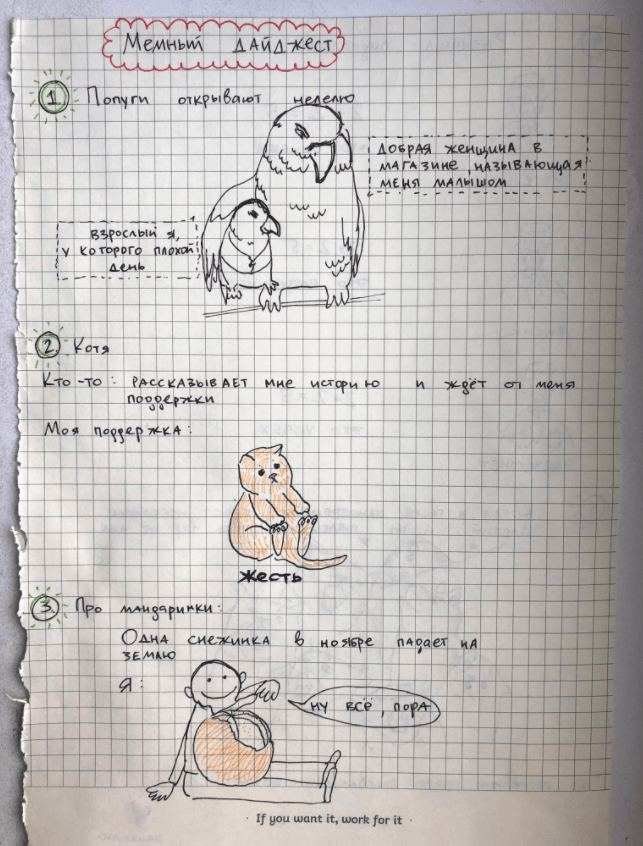 Мемный дайджест
1 Попуги открывают неделю
добрая женщина в
магазине, называющая
меня малышом
взрослый я,
у которого плохой
день
2 Котя
Кто-то: рассказывает мне историю и ждёт от меня
поддержки
Моя поддержка:
жесть
3. Про мандаринки:
Одна снежинка в ноябре падает на
землю
Я:
ну всё, пора
· If you want it, work for it ·